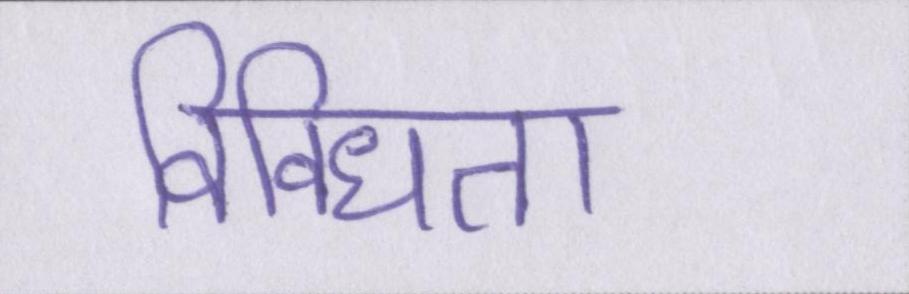 विविधता